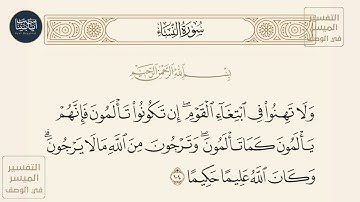 سُورَةُ النِّسَاءِ
التفسير
الميسر
في الوصف
بِسْمِ اللَّهِ الرَّحْمَٰنِ الرَّحِيمِ
وَلَا تَهِنُوا۟ فِى ٱبْتِغَآءِ ٱلْقَوْمِ ۖ إِن تَكُونُوا۟ تَأْلَمُونَ فَإِنَّهُمْ
يَأْلَمُونَ كَمَا تَأْلَمُونَ ۖ وَتَرْجُونَ مِنَ ٱللَّهِ مَا لَا يَرْجُونَ ۗ
وَكَانَ ٱللَّهُ عَلِيمًا حَكِيمًا ١٠٤
التفسير
الميسر
في الوصف